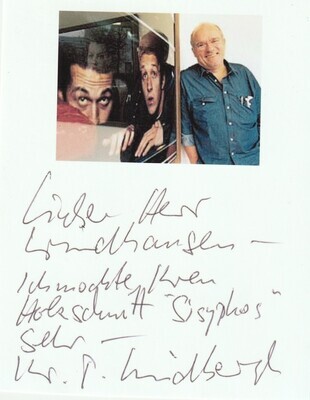 Lieber Herr
Wundhausen –
Ich mochte Ihren
Holzschnitt "Sisyphos"
sehr –
Ihr. P. Lindbergh